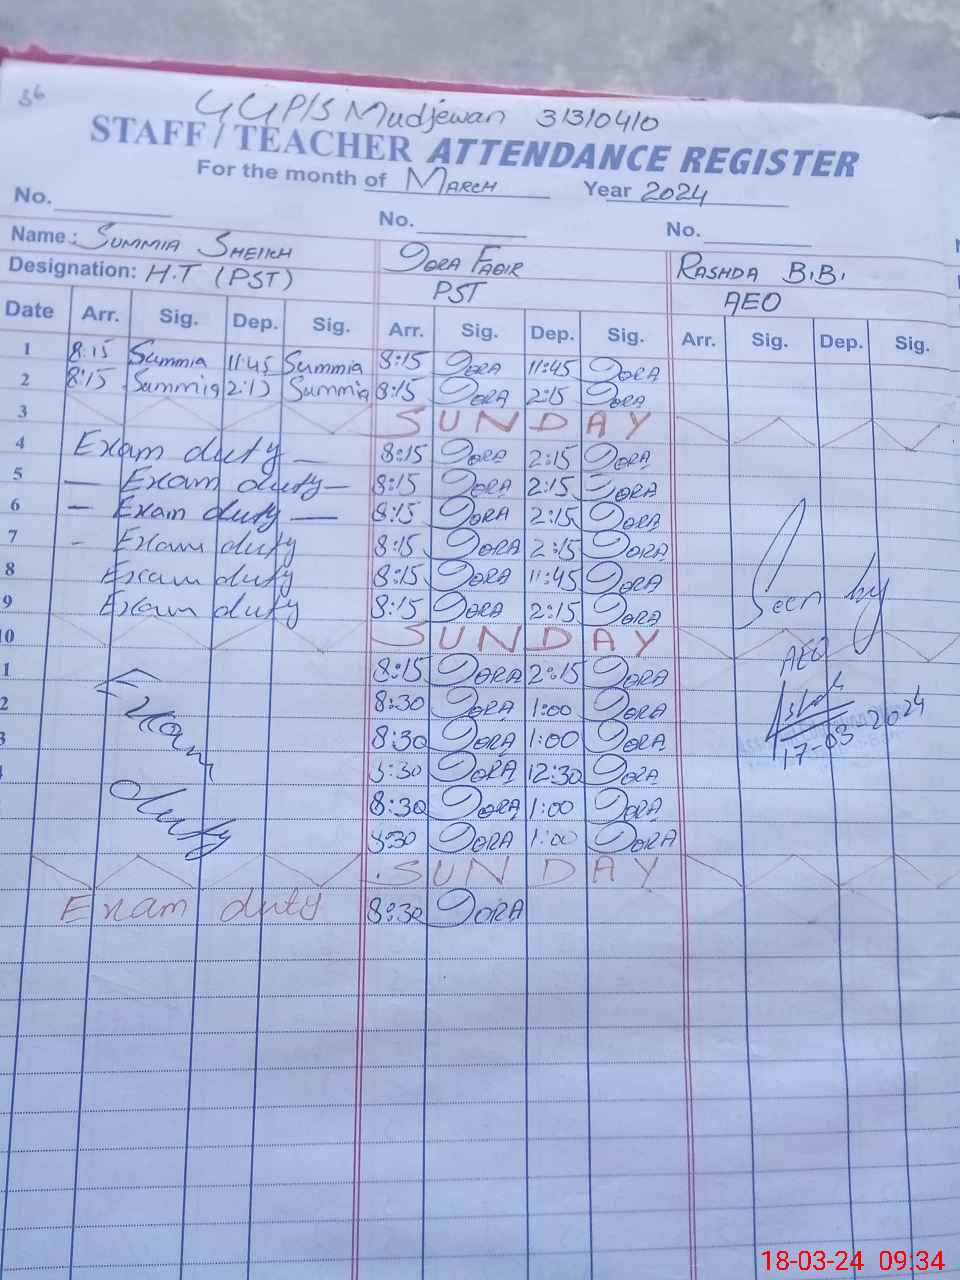 36
GGP/S Mudjewan 31310410
STAFF / TEACHER ATTENDANCE REGISTER
For the month of March Year 2024
No. No. No.
Name: Summia Sheikh Iqra Faqir Rashda B.B.
Designation: H.T (PST) PST AEO
Date Arr. Sig. Dep. Sig. Arr. Sig. Dep. Sig. Arr. Sig. Dep. Sig.
1 8:15 Summia 11:45 Summia 8:15 Iqra 11:45 Iqra
2 8:15 Summia 2:15 Summia 8:15 Iqra 2:15 Iqra
3 SUNDAY
4 Exam duty — 8:15 Iqra 2:15 Iqra
5 — Exam duty — 8:15 Iqra 2:15 Iqra
6 — Exam duty — 8:15 Iqra 2:15 Iqra
7 - Exam duty 8:15 Iqra 2:15 Iqra
8 Exam duty 8:15 Iqra 11:45 Iqra
9 Exam duty 8:15 Iqra 2:15 Iqra
Seen by
10 SUNDAY
AEO
1 8:15 Iqra 2:15 Iqra
2 Exam 8:30 Iqra 1:00 Iqra
17-03-2024
3 8:30 Iqra 1:00 Iqra
8:30 Iqra 12:30 Iqra
duty 8:30 Iqra 1:00 Iqra
8:30 Iqra 1:00 Iqra
SUNDAY
Exam duty 8:30 Iqra
18-03-24 09:34